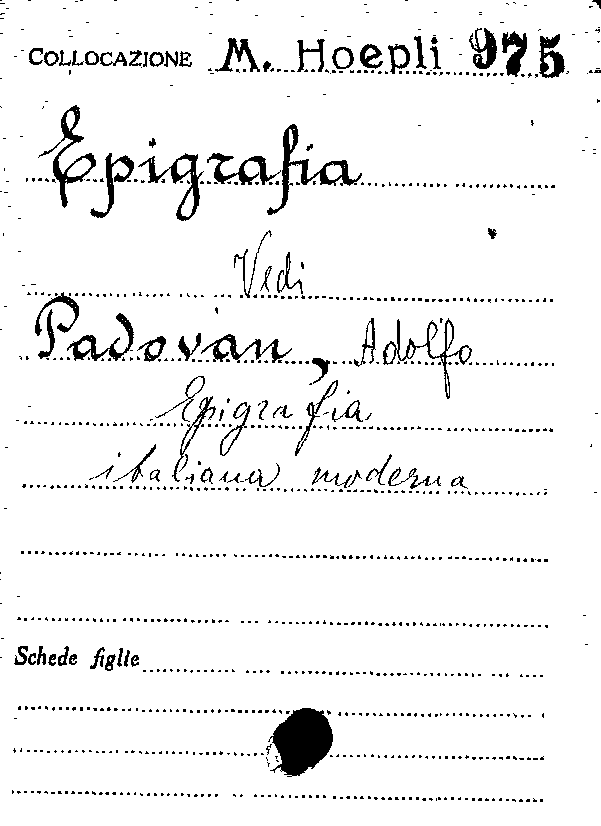 COLLOCAZIONE M. Hoepli 975
Epigrafia
Vedi
Padovan, Adolfo
Epigrafia
italiana moderna
Schede figlie